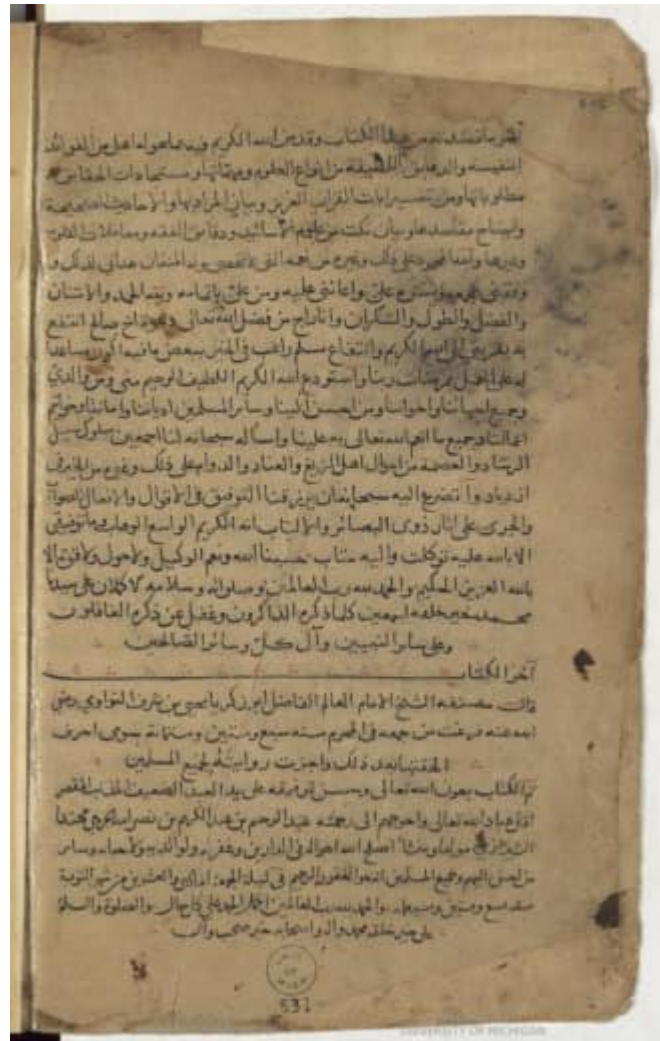 آخر ما قصدته من هذا الكتاب وقد من الله الكريم فيه بما هو له اهل من الفوائد
النفيسة والدقايق اللطيفة من انواع العلوم ومهماتها ومستجادات الحقايق
مطلوباتها ومن تفسير ايات القران العزيز وبيان المراد بها والاحاديث الصحيحة
وايضاح مقاصدها وبيان نكت من علوم الاسانيد ودقايق الفقه ومعاملات القلوب
وغيرها والله المحمود على ذلك وغيره من نعمه التي لا تحصى وله المنة ان هداني لذلك و
وفقني لجمعه ويسره علي واعانني عليه ومن علي باتمامه وله الحمد والامتنان
والفضل والطول والشكران وانا راج من فضل الله تعالى دعوة اخ صالح انتفع
بها تقربني الى الله الكريم وانتفاع مسلم راغب في الخير ببعض ما فيه اكون مساعدا
له على العمل بمرضات ربنا واستودع الله الكريم اللطيف الرحيم مني ومن والدي
وجميع احبابنا واخواننا ومن احسن الينا وسائر المسلمين ادياننا واماناتنا وخواتيم
اعمالنا وجميع ما انعم الله تعالى به علينا واساله سبحانه لنا اجمعين سلوك سبيل
الرشاد والعصمة من احوال اهل الزيغ والعناد والدوام على ذلك وغيره من الخير في
ازدياد واتضرع اليه سبحانه ان يرزقنا التوفيق في الاقوال والافعال للصواب
والجري على اثار ذوي البصائر والالباب انه الكريم الواسع الوهاب وما توفيقي
الا بالله عليه توكلت واليه متاب حسبنا الله ونعم الوكيل ولا حول ولا قوة الا
بالله العزيز الحكيم والحمد لله رب العالمين وصلواته وسلامه الاكملان على سيدنا
محمد خير خلقه اجمعين كلما ذكره الذاكرون وغفل عن ذكره الغافلون
وعلى سائر النبيين وآل كل وسائر الصالحين
آخر الكتاب
قال مصنفه الشيخ الامام العالم الفاضل ابو زكريا يحيى بن شرف النواوي رضي
الله عنه فرغت من جمعه في المحرم سنة سبع وستين وستمائة سوى احرف
الحقتها بعد ذلك واجزت روايته لجميع المسلمين
تم الكتاب بعون الله تعالى وحسن توفيقه على يد العبد الضعيف المذنب المقصر
عباد الله تعالى واحوجهم الى رحمته عبد الرحيم بن عبد الكريم بن نصر الله
مولدا ومنشأ اصلح الله احواله في الدارين وغفر له ولوالديه وسائر
من احسن اليهم وجميع المسلمين انه هو الغفور الرحيم في ليلة الجمعة والعشرين من شهر
والحمد لله رب العالمين الحمد على كل حال والصلوة والسلام
على خير خلقه محمد وآله واصحابه خير صحب وآل
531
UNIVERSITY OF MICHIGAN